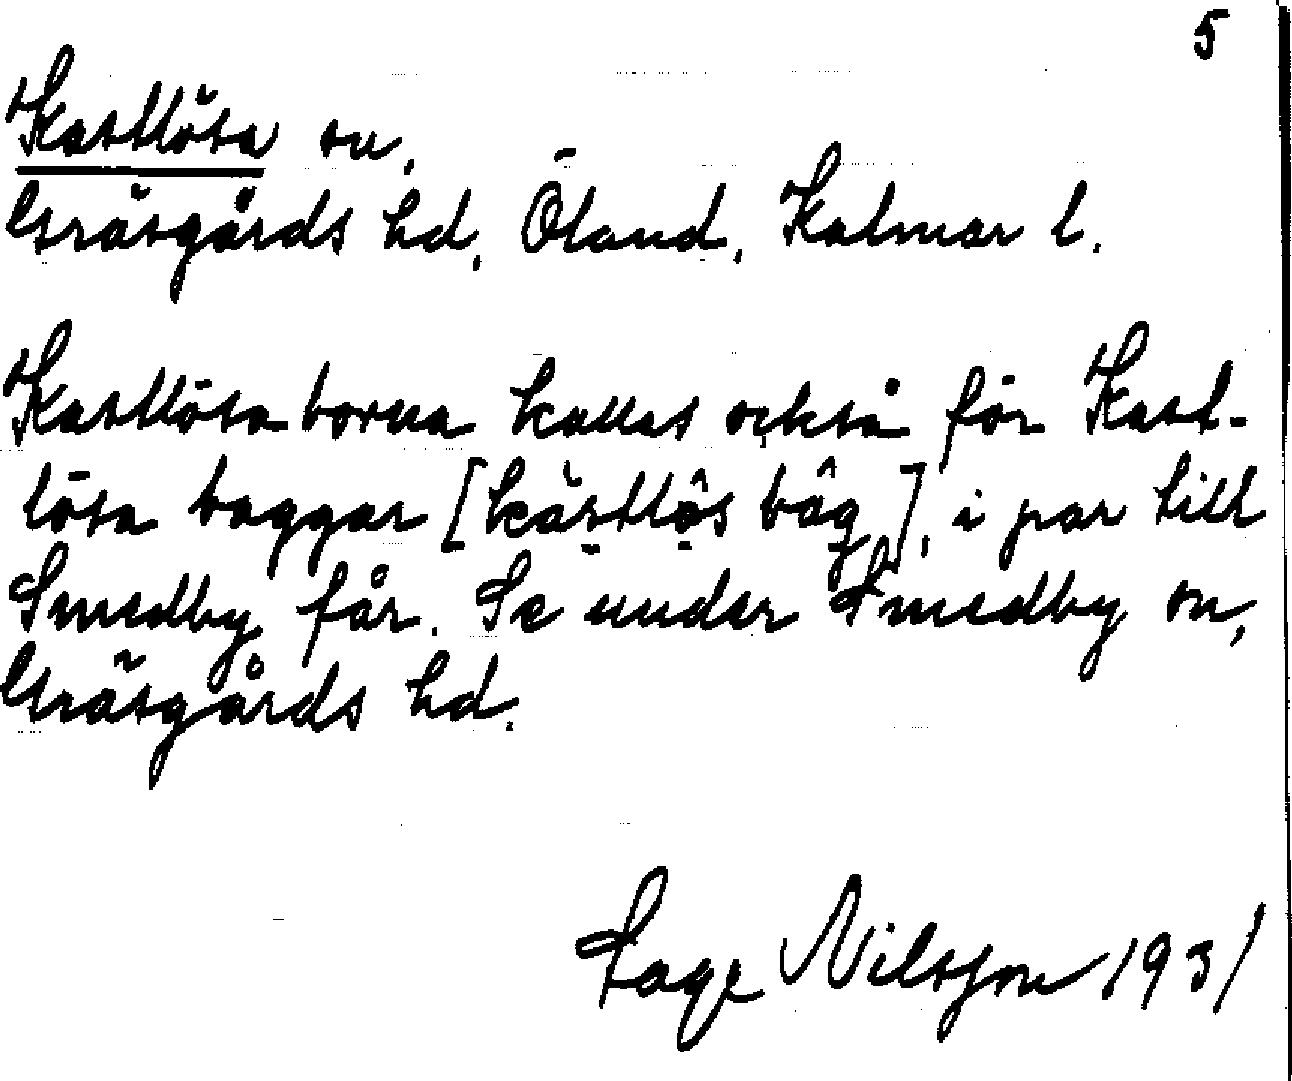 5
Kastlösa sn,
Gräsgårds hd, Öland, Kalmar l.
Kastlösaborna kallas också för Kast-
lösa baggar [kástlø̂s bâg], i par till
Smedby får. Se under Smedby sn,
Gräsgårds hd.
Sage Nilsson 1931